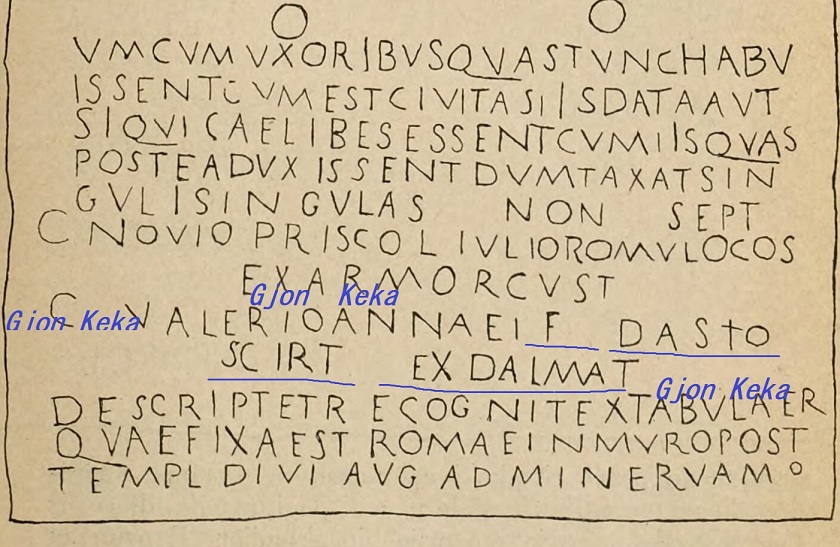 VMCVM VXORIBVSQVASTVNCHABV
ISSENTCVMESTCIVITASIISDATAAVT
SIQVICAELIBESESSENTCVMIISQVAS
POSTEADVXISSENTDVMTAXATSIN
GVLISIN GVLAS NON SEPT
C NOVIO PRISCO L IVLIOROMVLOCOS
EXARMORCVST
Gjon Keka
C VALERIOANNAEI F DASTO
Gjon Keka
SCIRT EX DALMAT
Gjon Keka
DESCRIPTETR ECOGNITEXTABVLAER
QVAEFIXAEST ROMAEINMVROPOST
TEMPL DIVI AVG AD MINERVAM